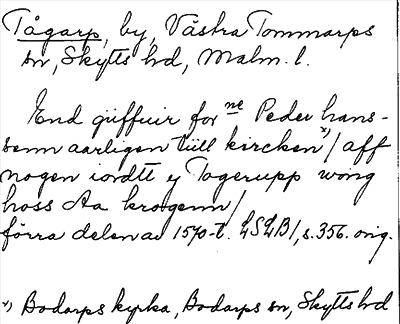 Tågarp, by, Västra Tommarps
sn, Skytts hd, Malm. l.
End giffuir for ne Peder Hans-
senn aarligen tiill kircken x)/ aff
nogen iordtt y Togerupp wong
hoss Aa krogenn/
förra delen av 1570-t. LSLB 1, s. 356. orig.
x) Bodarps kyrka, Bodarps sn, Skytts hd